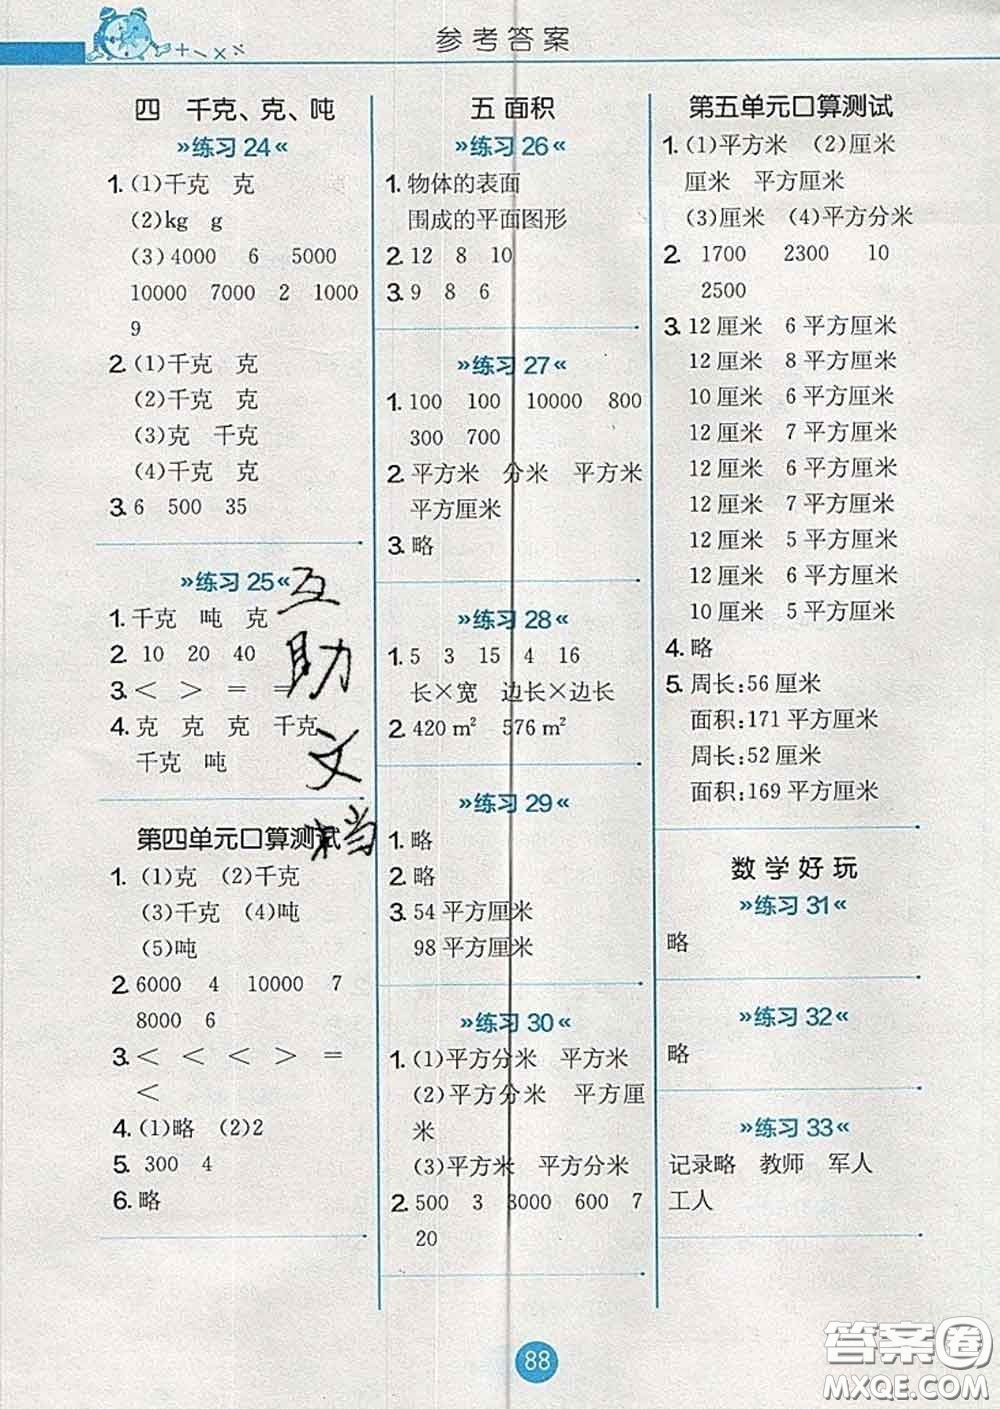 参考答案
四 千克、克、吨
»练习24«
1. (1)千克 克
(2)kg g
(3)4000 6 5000
10000 7000 2 1000
9
2. (1)千克 克
(2)千克 克
(3)克 千克
(4)千克 克
3. 6 500 35
»练习25«
1. 千克 吨 克
2. 10 20 40
3. < > = =
4. 克 克 克 千克
千克 吨
第四单元口算测试
1. (1)克 (2)千克
(3)千克 (4)吨
(5)吨
2. 6000 4 10000 7
8000 6
3. < < < > =
<
4. (1)略 (2)2
5. 300 4
6. 略
互
助
文
档
五 面积
»练习26«
1. 物体的表面
围成的平面图形
2. 12 8 10
3. 9 8 6
»练习27«
1. 100 100 10000 800
300 700
2. 平方米 分米 平方米
平方厘米
3. 略
»练习28«
1. 5 3 15 4 16
长×宽 边长×边长
2. 420 m² 576 m²
»练习29«
1. 略
2. 略
3. 54 平方厘米
98 平方厘米
»练习30«
1. (1)平方分米 平方米
(2)平方分米 平方厘
米
(3)平方米 平方分米
2. 500 3 8000 600 7
20
第五单元口算测试
1. (1)平方米 (2)厘米
厘米 平方厘米
(3)厘米 (4)平方分米
2. 1700 2300 10
2500
3. 12 厘米 6 平方厘米
12 厘米 8 平方厘米
10 厘米 6 平方厘米
12 厘米 7 平方厘米
12 厘米 6 平方厘米
12 厘米 7 平方厘米
12 厘米 5 平方厘米
12 厘米 6 平方厘米
10 厘米 5 平方厘米
4. 略
5. 周长:56 厘米
面积:171 平方厘米
周长:52 厘米
面积:169 平方厘米
数学好玩
»练习31«
略
»练习32«
略
»练习33«
记录略 教师 军人
工人
88
答案圈
MXQE.COM